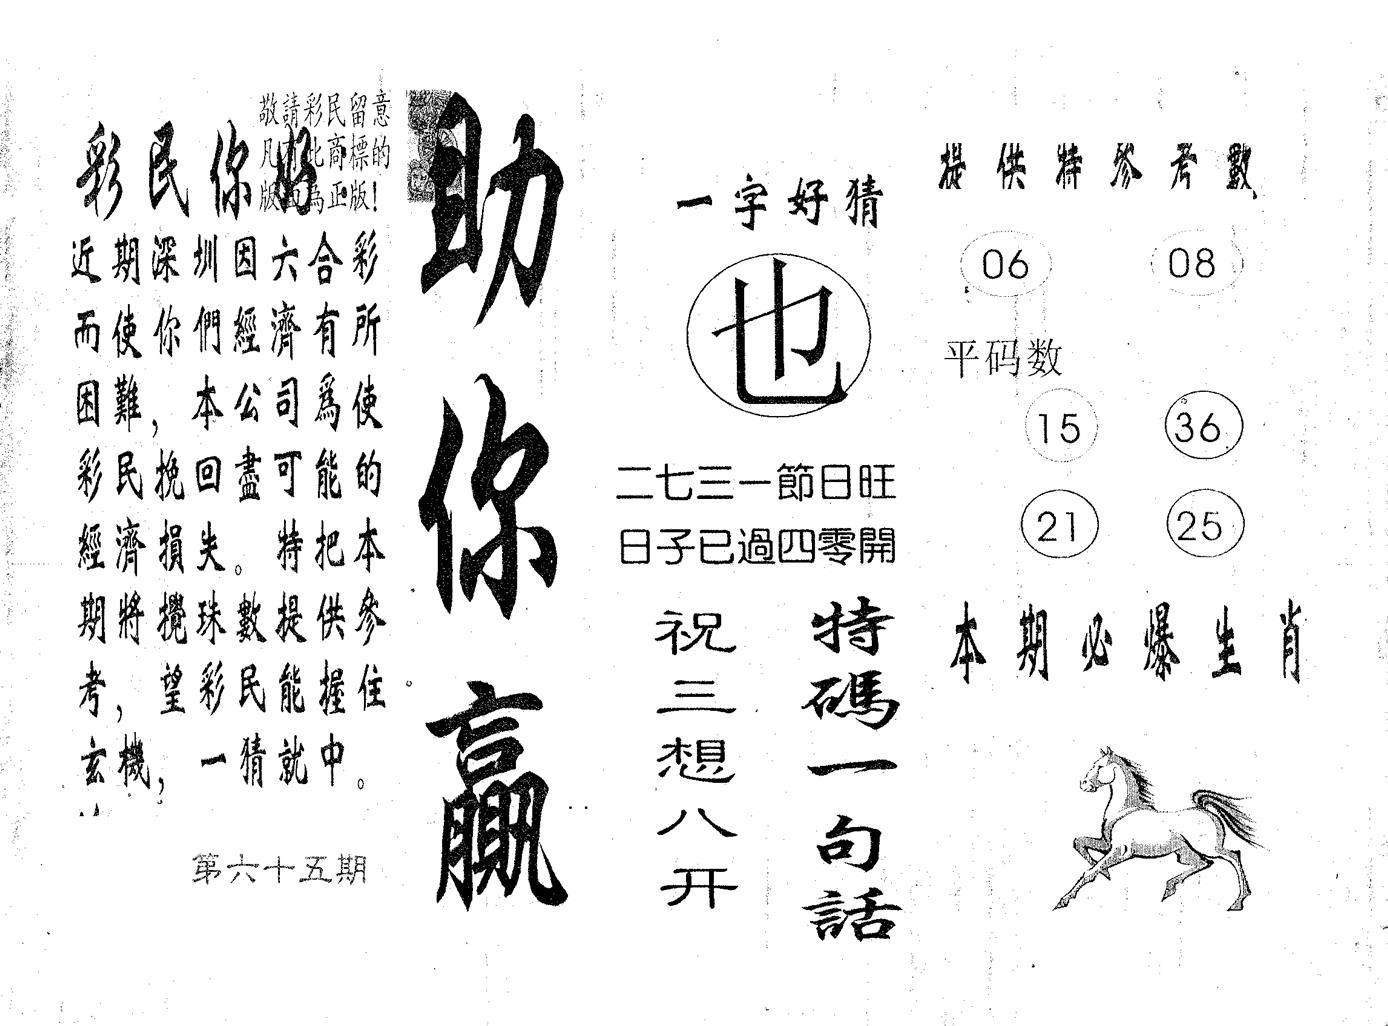 敬請彩民留意
凡有此商標的
版面為正版!
彩民你好
近期深圳因六合彩
而使你們經濟有所
困難，本公司爲使
彩民挽回盡可能的
經濟損失。特把本
期將攪珠數提供參
考，望彩民能握住
玄機，一猜就中。
第六十五期
助你贏
一字好猜
也
二七三一節日旺
日子已過四零開
特碼一句話
祝三想八开
提供特參考數
06 08
平码数
15 36
21 25
本期必爆生肖